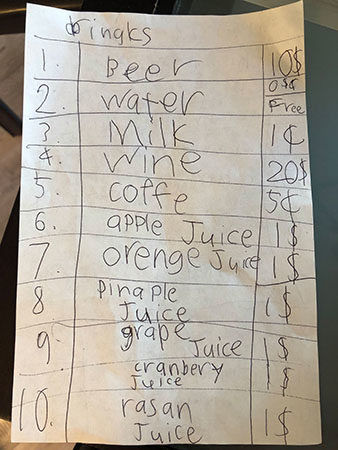 dringks
1. Beer 10$
2. water 0$¢ Free
3. Milk 1¢
4. wine 20$
5. coffe 5¢
6. apple Juice 1$
7. orenge Juice 1$
8 Pinaple
Juice 1$
9. grape
Juice 1$
cranbery
Juice 1$
10. rasan
Juice 1$